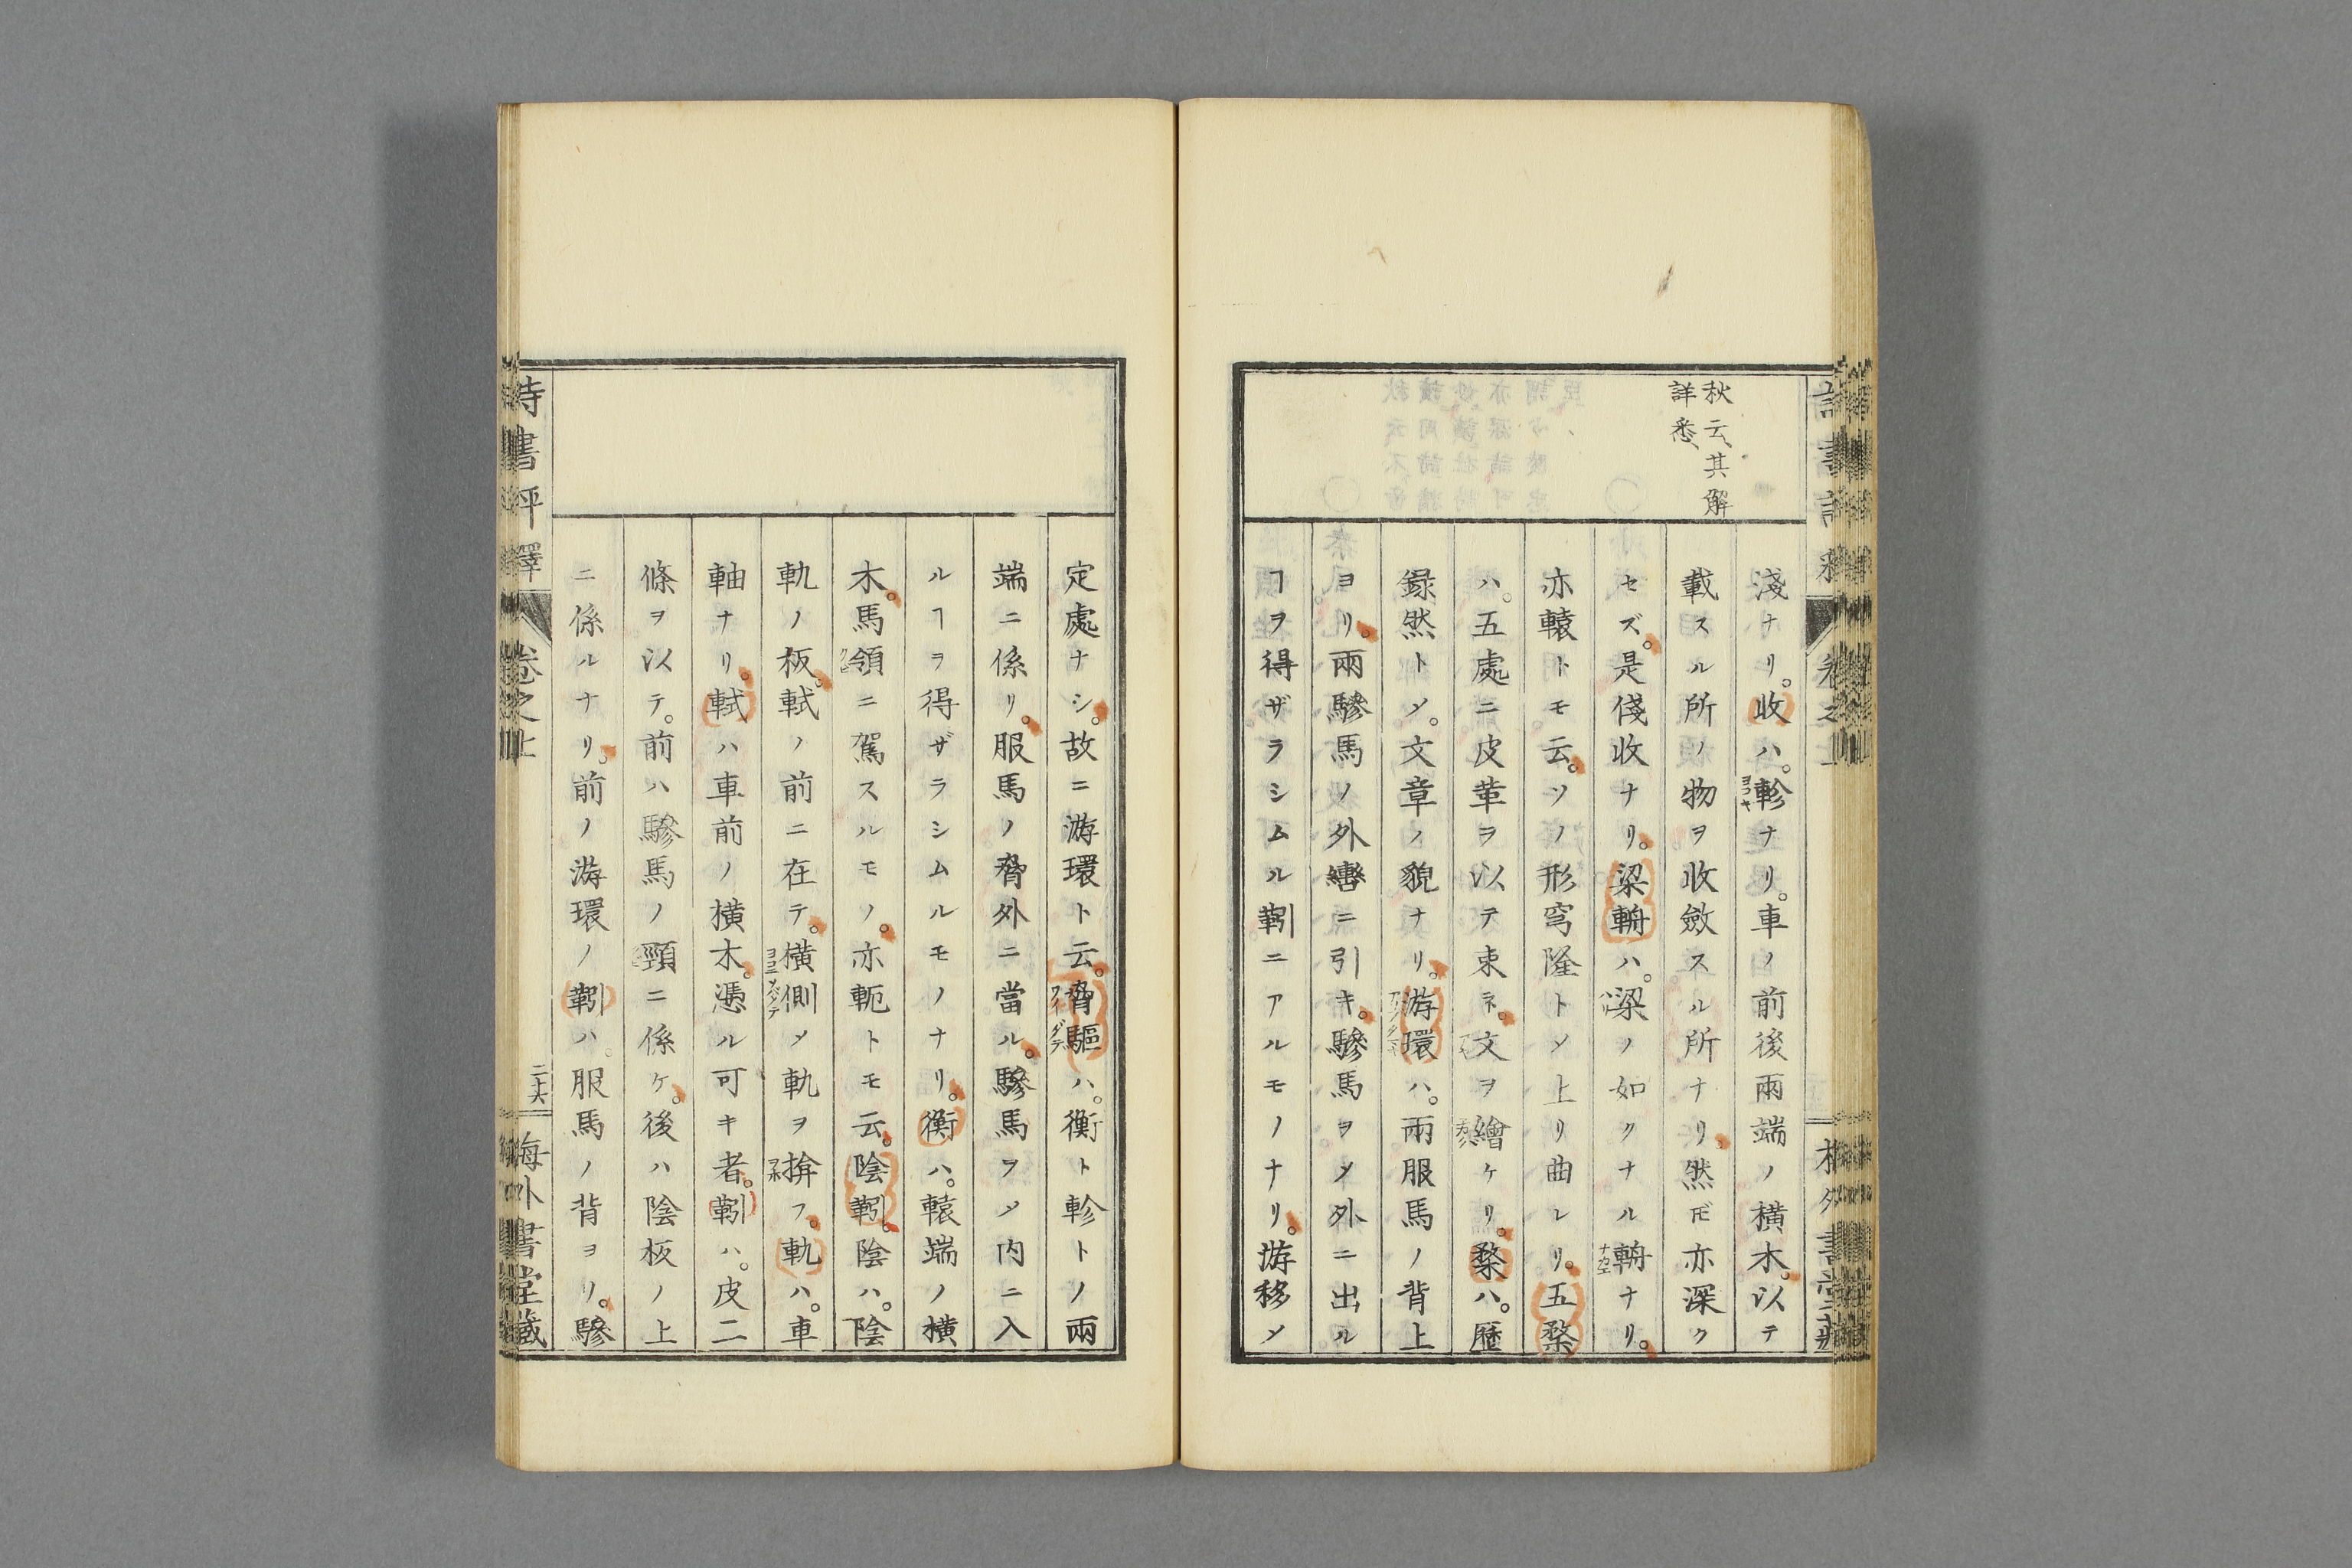 秋云、其解
詳悉、
淺ナリ。收ハ。軫ナリ。車ノ前後兩端ノ橫木。以テ
載スル所ノ物ヲ收斂スル所ナリ。然𪜈亦深ク
セズ。是俴收ナリ。梁輈ハ。梁ノ如クナル輈ナリ。
亦轅トモ云。ソノ形穹隆トメ上リ曲レリ。五楘
ハ。五處ニ皮革ヲ以テ束ネ。文ヲ繪ケリ。楘ハ。歷
錄然トメ。文章ノ貌ナリ。游環ハ。兩服馬ノ背上
ヨリ。兩驂馬ノ外轡ニ引キ。驂馬ヲメ外ニ出ル
ヿヲ得ザラシムル靷ニアルモノナリ。游移メ
定處ナシ。故ニ游環ト云。脅驅ハ。衡ト軫トノ兩
端ニ係リ。服馬ノ脅外ニ當ル。驂馬ヲメ內ニ入
ルヿヲ得ザラシムルモノナリ。衡ハ。轅端ノ橫
木。馬領ニ駕スルモノ。亦軛トモ云。陰靷。陰ハ。陰
軌ノ板。軾ノ前ニ在テ。橫側メ軌ヲ揜フ。軌ハ。車
軸ナリ。軾ハ車前ノ橫木。憑ル可キ者。靷ハ。皮二
條ヲ以テ。前ハ驂馬ノ頸ニ係ケ。後ハ陰板ノ上
ニ係ルナリ。前ノ游環ノ靷ハ。服馬ノ背ヨリ。驂
詩書評釋 卷之上 二十六 海外書堂藏